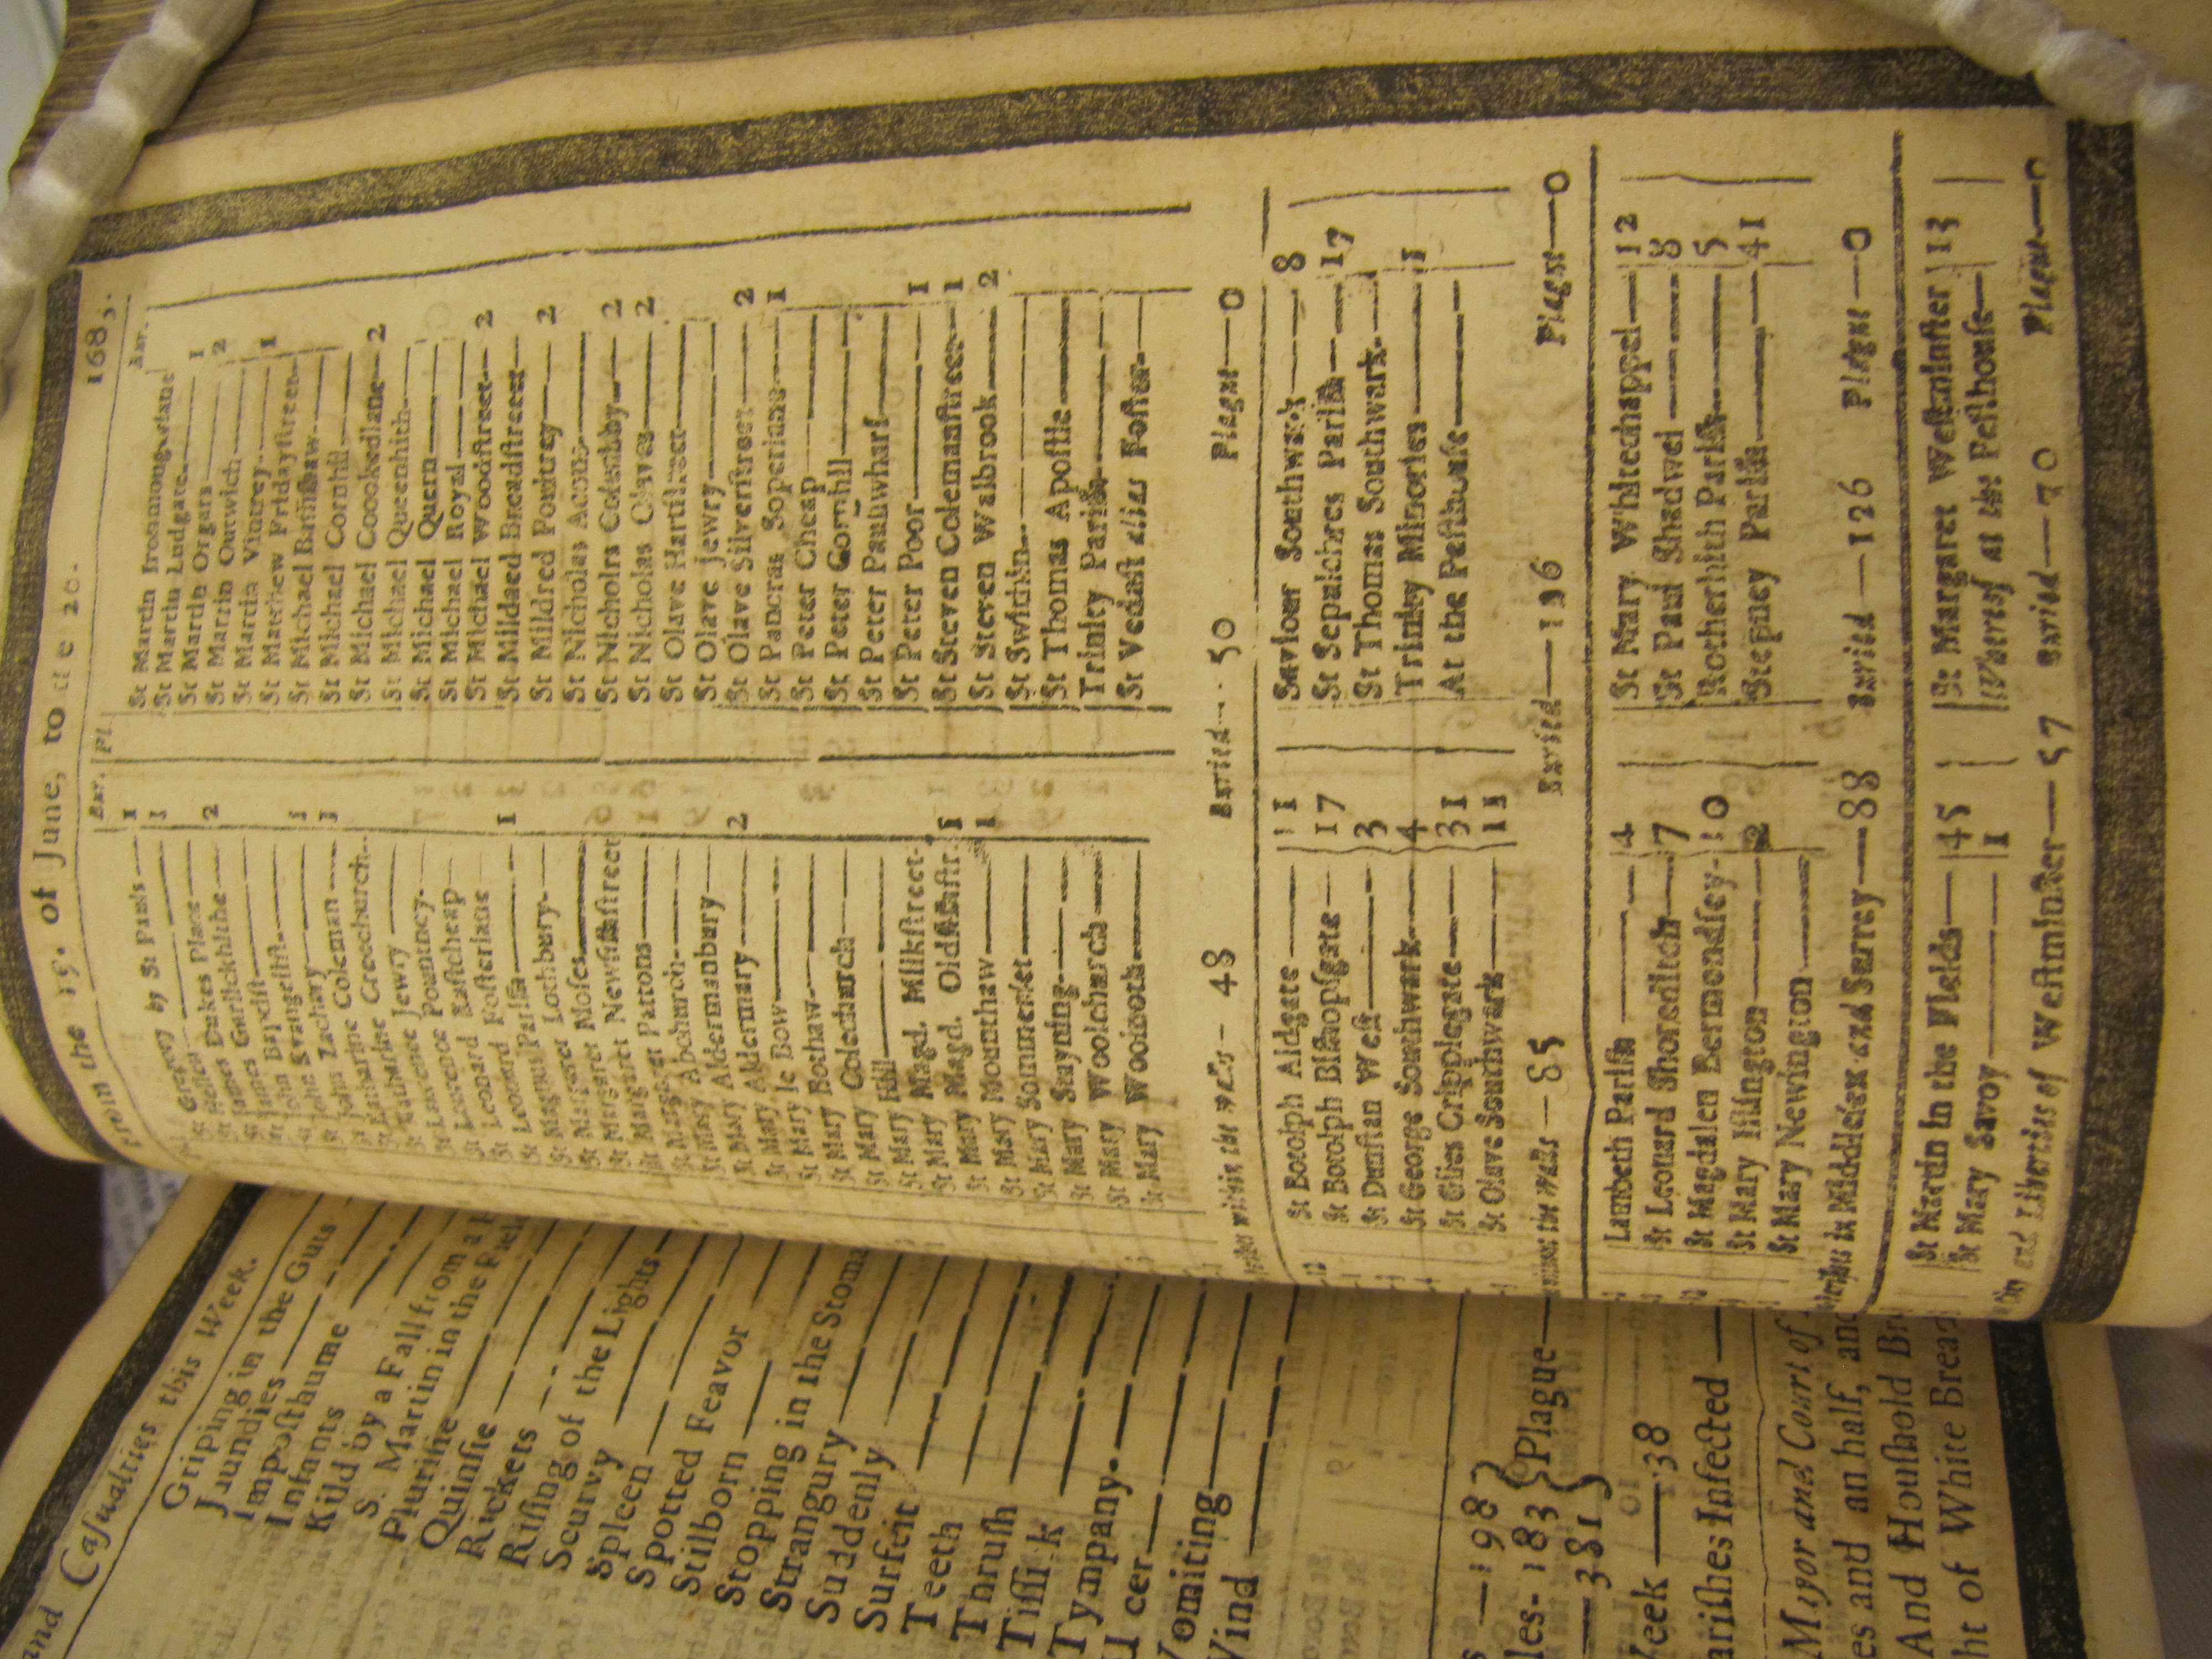 From the 19. of June, to the 26. 168
Bur. Pl.
Bur.
St Gregory by St Pauls — 1
St Hellen — 1
St James Dukes Place
St James Garlickhithe — 2
St John Baptist
St John Evangelist
St John Zachary — 1
St Katharine Coleman — 1
St Katharine Creechurch
St Lawrence Jewry
St Lawrence Pountney
St Leonard Eastcheap
St Leonard Fosterlane
St Magnus Parish — 1
St Margaret Lothbury
St Margaret Moses
St Margaret Newfishstreet
St Margaret Pattons
St Mary Abchurch
St Mary Aldermanbury
St Mary Aldermary — 2
St Mary le Bow
St Mary Bothaw
St Mary Colechurch
St Mary Hill
St Mary Magd. Milkstreet
St Mary Magd. Oldfishstr. 1
St Mary Mounthaw — 1
St Mary Sommerset
St Mary Stayning
St Mary Woolchurch
St Mary Woolnoth
St Martin Ironmongerlane
St Martin Ludgate — 1
St Martin Orgars — 2
St Martin Outwich
St Martin Vintrey — 1
St Matthew Fridaystreet
St Michael Bassishaw
St Michael Cornhil
St Michael Coookedlane — 2
St Michael Queenhith
St Michael Quern
St Michael Royal
St Michael Woodstreet — 2
St Mildred Breadstreet
St Mildred Poultrey — 2
St Nicholas Acons
St Nicholrs Coleabby — 2
St Nicholas Olaves — 2
St Olave Hartstreet
St Olave Jewry
St Olave Silverstreet — 2
St Pancras Soperlane — 1
St Peter Cheap
St Peter Cornhil
St Peter Paulswharf
St Peter Poor — 1
St Steven Colemanstreet — 1
St Steven Walbrook — 2
St Swithin
St Thomas Apostle
Trinity Parish
St Vedast alias Foster
within the walls — 48 Buried — 50 Plague — 0
St Botolph Aldgate — 11
St Botolph Bishopsgate — 17
St Dunstan West — 3
St George Southwark — 4
St Giles Cripplegate — 31
St Olave Southwark — 11
Saviour Southwark — 8
St Sepulchres Parish — 17
St Thomas Southwark
Trinity Minories — 1
At the Pesthouse
the walls — Buried — Plague — 0
Lambeth Parish — 4
St Leonard Shoreditch — 7
St Magdalen Bermondsey — 10
St Mary Islington — 2
St Mary Newington
St Mary Whitechappel — 12
St Paul Shadwel — 8
Rotherhith Parish — 5
Stepney Parish — 41
in Middlesex and Surrey — 88 Buried — 126 Plague — 0
St Martin in the Fields — 45
St Mary Savoy — 1
St Margaret Westminster 13
Whereof at the Pesthouse
and Liberties of Westminster — 57 Buried — 70 Plague — 0
and Casualties this Week.
Griping in the Guts
Jaundies
Imposthume
Infants
Kild by a Fall from a
S. Martin in the Fiel
Plurisie
Quinsie
Rickets
Rising of the Lights
Scurvy
Spleen
Spotted Feavor
Stilborn
Stopping in the Stom
Strangury
Suddenly
Surfeit
Teeth
Thrush
Tissick
Tympany
Ulcer
Vomiting
Wind
— 198
les - 183 Plague
— 381
Week — 38
arishes Infected
Mayor and Court of
es and an half, and
And Houshold Br
ht of White Brea